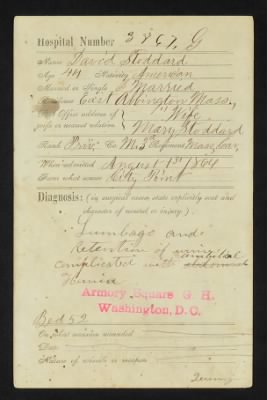 Hospital Number 3867, G
Name David Stoddard
Age 44 Nativity American
Married or Single Married
Residence East Abington Mass.,
Post Office address of Wife
wife or nearest relation Mary Stoddard
Rank Priv. Co. M Regiment Mass. Cav.
When admitted August 1st 1864
From what source City Point
Diagnosis: (in surgical cases state explicitly seat and
character of wound or injury).
Lumbago and
Retention of
complicated with umbilical
Hernia
Armory Square G. H.
Washington, D.C.
Bed 52
On what occasion wounded
Date
Nature of missile or weapon